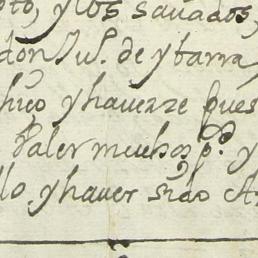 oto, y los sauados,
don Ju.º de ybarra
hijo y haverze pues
Paler muchos p.º y
llo y haver sido A